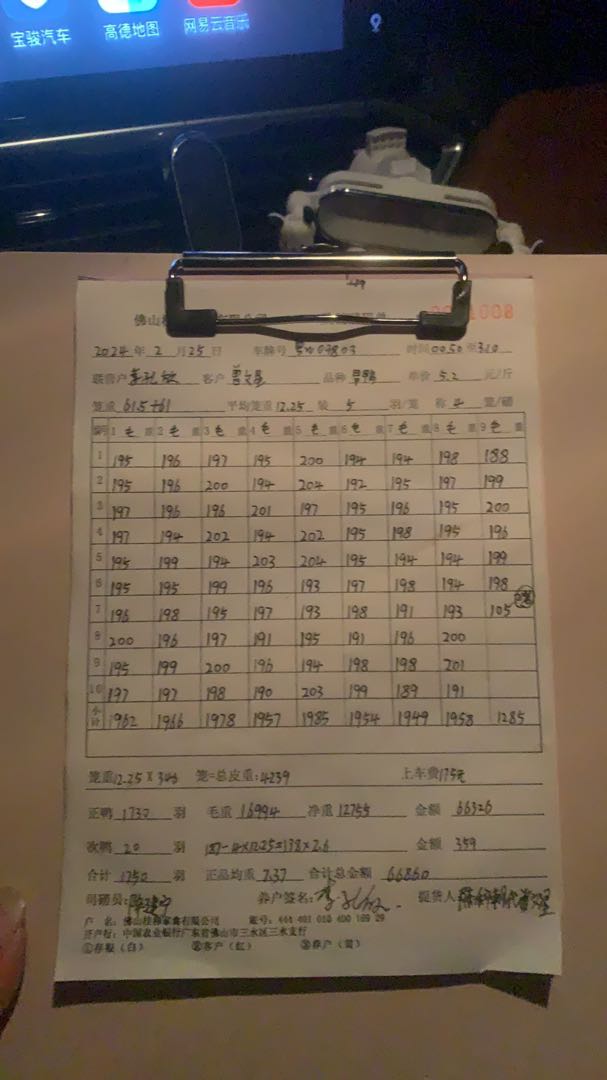 宝骏汽车 高德地图 网易云音乐
佛山 008
2024年2月25日 车牌号 时间0050至310
联营户 客户 曾文星 品种 单价5.2元/斤
笼重61.5+61 平均笼重12.25 装5羽/笼 称4笼/磅
1毛重 2毛重 3毛重 4毛重 5毛重 6毛重 7毛重 8毛重 9毛重
1 195 196 197 195 200 194 194 198 188
2 195 196 200 194 204 192 195 197 199
3 197 196 196 201 197 195 196 195 200
4 197 194 202 194 202 195 198 195 196
5 195 199 194 203 204 195 194 194 199
6 195 195 199 196 193 197 198 194 198
7 196 198 195 197 193 198 191 193 105
8 200 196 197 191 195 191 196 200
9 195 199 200 196 194 198 198 201
10 197 197 198 190 203 199 189 191
小计 1962 1966 1978 1957 1985 1954 1949 1958 1285
笼重12.25×346笼=总皮重:4239 上车费175元
正鸭1730羽 毛重16994 净重12755 金额66326
次鸭20羽 187-4×12.25=138×2.6 金额359
合计1750羽 正品均重7.37 合计总金额66860
司磅员: 养户签名: 提货人
户 名:佛山桂柳家禽有限公司 账号:444 401 010 400 169 29
开户行:中国农业银行广东省佛山市三水区三水支行
①存根(白) ②客户(红) ③养户(蓝)